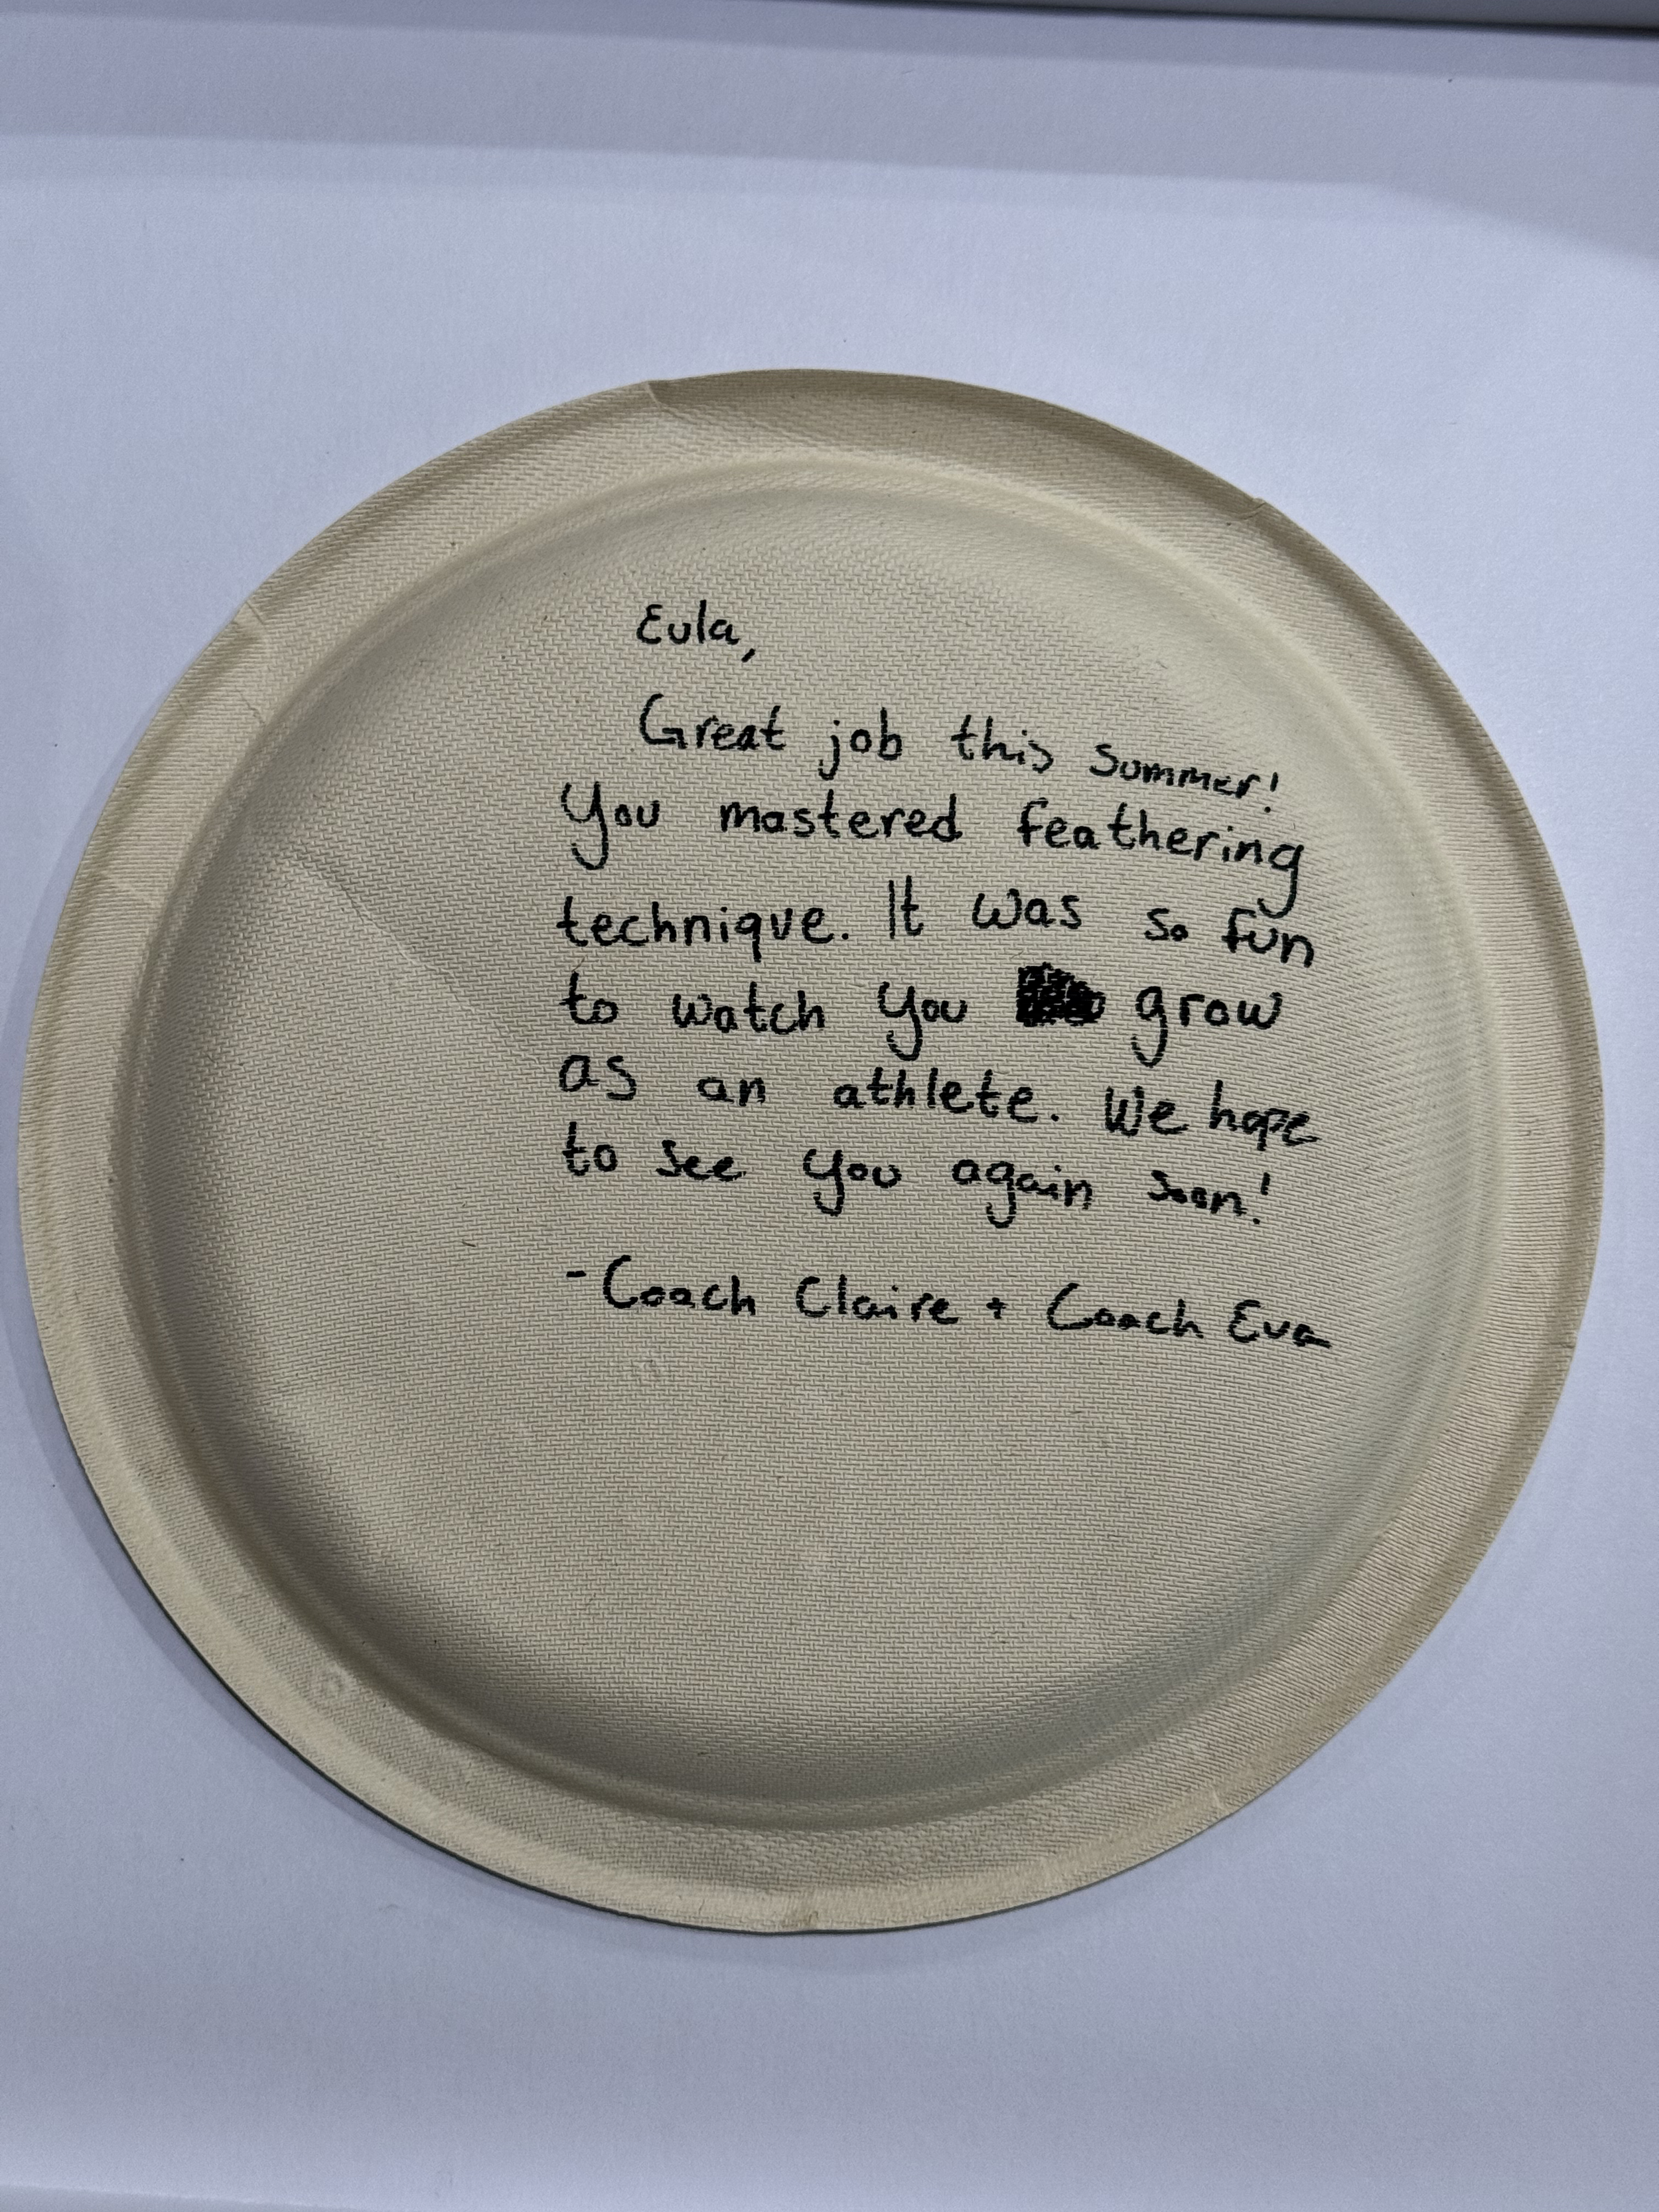 Eula,
Great job this summer!
You mastered feathering
technique. It was so fun
to watch you grow
as an athlete. We hope
to see you again soon!
-Coach Claire + Coach Eva